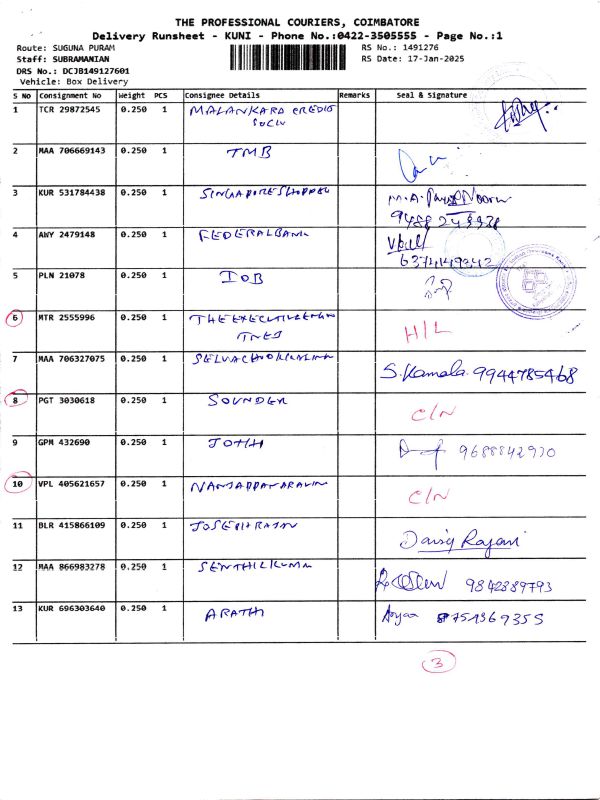 THE PROFESSIONAL COURIERS, COIMBATORE
Delivery Runsheet - KUNI - Phone No.:0422-3505555 - Page No.:1
Route: SUGUNA PURAM RS No.: 1491276
Staff: SUBRAMANIAN RS Date: 17-Jan-2025
DRS No.: DCJB149127601
Vehicle: Box Delivery
S No Consignment No Weight PCS Consignee Details Remarks Seal & Signature
1 TCR 29872545 0.250 1 MALANKARA CREDIT
2 MAA 706669143 0.250 1 TMB
3 KUR 531784438 0.250 1 SINGAPORE SHOPPEE
4 AWY 2479148 0.250 1 FEDERAL BANK
5 PLN 21078 0.250 1 IOB
6 MTR 2555996 0.250 1 THE EXECUTIVE ENGIN H/L
7 MAA 706327075 0.250 1 S.Kamala. 9944785468
8 PGT 3030618 0.250 1 SOUNDER C/N
9 GPM 432690 0.250 1 JOTHI
10 VPL 405621657 0.250 1 C/N
11 BLR 415866109 0.250 1 JOSEPH RAJAN Daisy Rajani
12 MAA 866983278 0.250 1 SENTHILKUMA 9842389793
13 KUR 696303640 0.250 1 ARATHI 8751369355
3